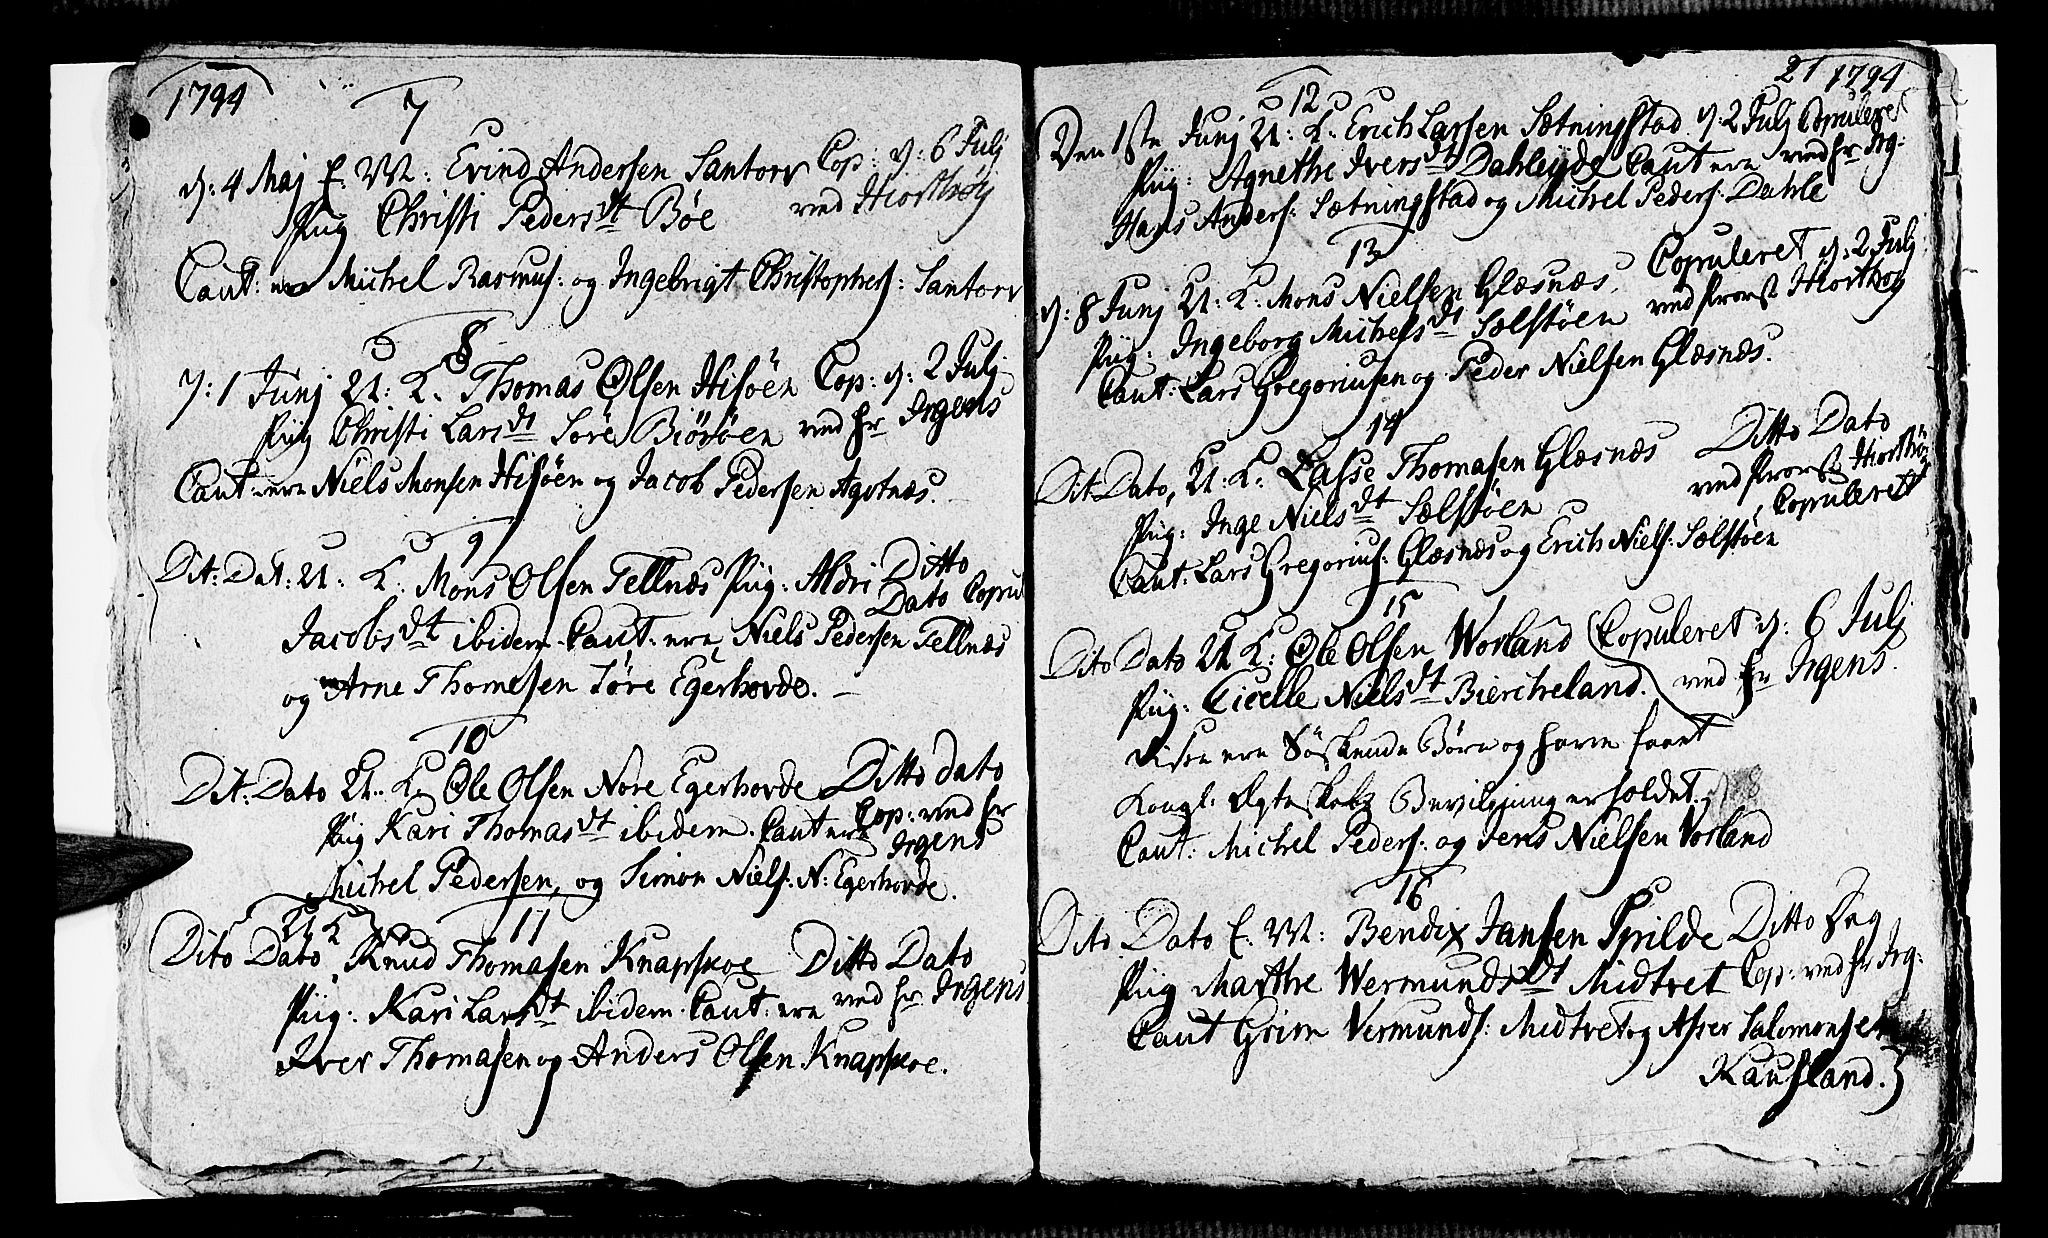 1794
7
d: 4 Maj E. M: Evind Andersen Santorv Cop: d: 6 Julj
Piig Christi Peders dt Bøe ved Hiorthøy
Caut: ere Michel Rasmus: og Ingebrigt Christophers: Santorv
8
d: 1 Junj U: K. Thomas Olsen Hisøen Cop: d: 2 Julj
Piig Christi Lars dt Søre Biørøen ved hr Irgens
Caut: ere Niels Monsen Hisøen og Jacob Pedersen Agotnæs.
9
Dit: Dat: U: K: Mons Olsen Tellnæs Piig: Aldri Ditto
Dato Copul
Jacobs dt ibidem. Caut: ere, Niels Pedersen Tellnæs
og Arne Thomesen Søre Egerhovde.
10
Dit: Dato U: K: Ole Olsen Nore Egerhovde Ditto dato
Piig Kari Thomas dt ibidem. Caut ere Cop: ved hr
Irgens
Michel Pedersen, og Simon Niels: N: Egerhovde.
11
U K
Dito Dato, Knud Thomasen Knapskoe Ditto Dato
Piig: Kari Lars dt ibidem. Caut: ere ved hr Irgens
Iver Thomasen og Anders Olsen Knapskoe.
21 1794
12
Den 1ste Junj U: K. Erich Larsen Sætningstad d: 2 Julj Copuleret
Piig: Agnethe Ivers dt Dahleyde Caut ere ved hr Irg:
Hans Anders: Sætningstad og Michel Peders: Dahle
13
d: 8 Junj U: K: Mons Nielsen Glæsnæs. Copuleret d: 2 Julj
Piig: Ingeborg Michels dt Sælstøen ved Provst Hiorthøy
Caut: Lars Gregoriusen og Peder Nielsen Glæsnæs.
14
Dit: Dato, U: K: Lasse Thomasen Glæsnæs Ditto Dato
Piig: Inge Niels dt Sælstøen ved Provst Hiorthøy
Copuleret
Caut: Lars Gregorius: Glæsnæs og Erich Niels: Sælstøen
15
Dito Dato U K: Ole Olsen Worland Copuleret d: 6 Julj
Piig: Cicelle Niels dt Biercheland. ved hr Irgens.
disse ere Søskende Børn og have faaet
Kongl: Ægteskabs Bevilgning erholdet.
Caut: Michel Peders: og Jens Nielsen Vorland
16
Dito Dato E. M: Bendix Jansen Spilde Ditto Dag
Piig Marthe Wermunds dt Midtvet Cop: ved hr Irg:
Caut Grim Vermunds: Midtvet og Asser Salomonsen
Kausland.